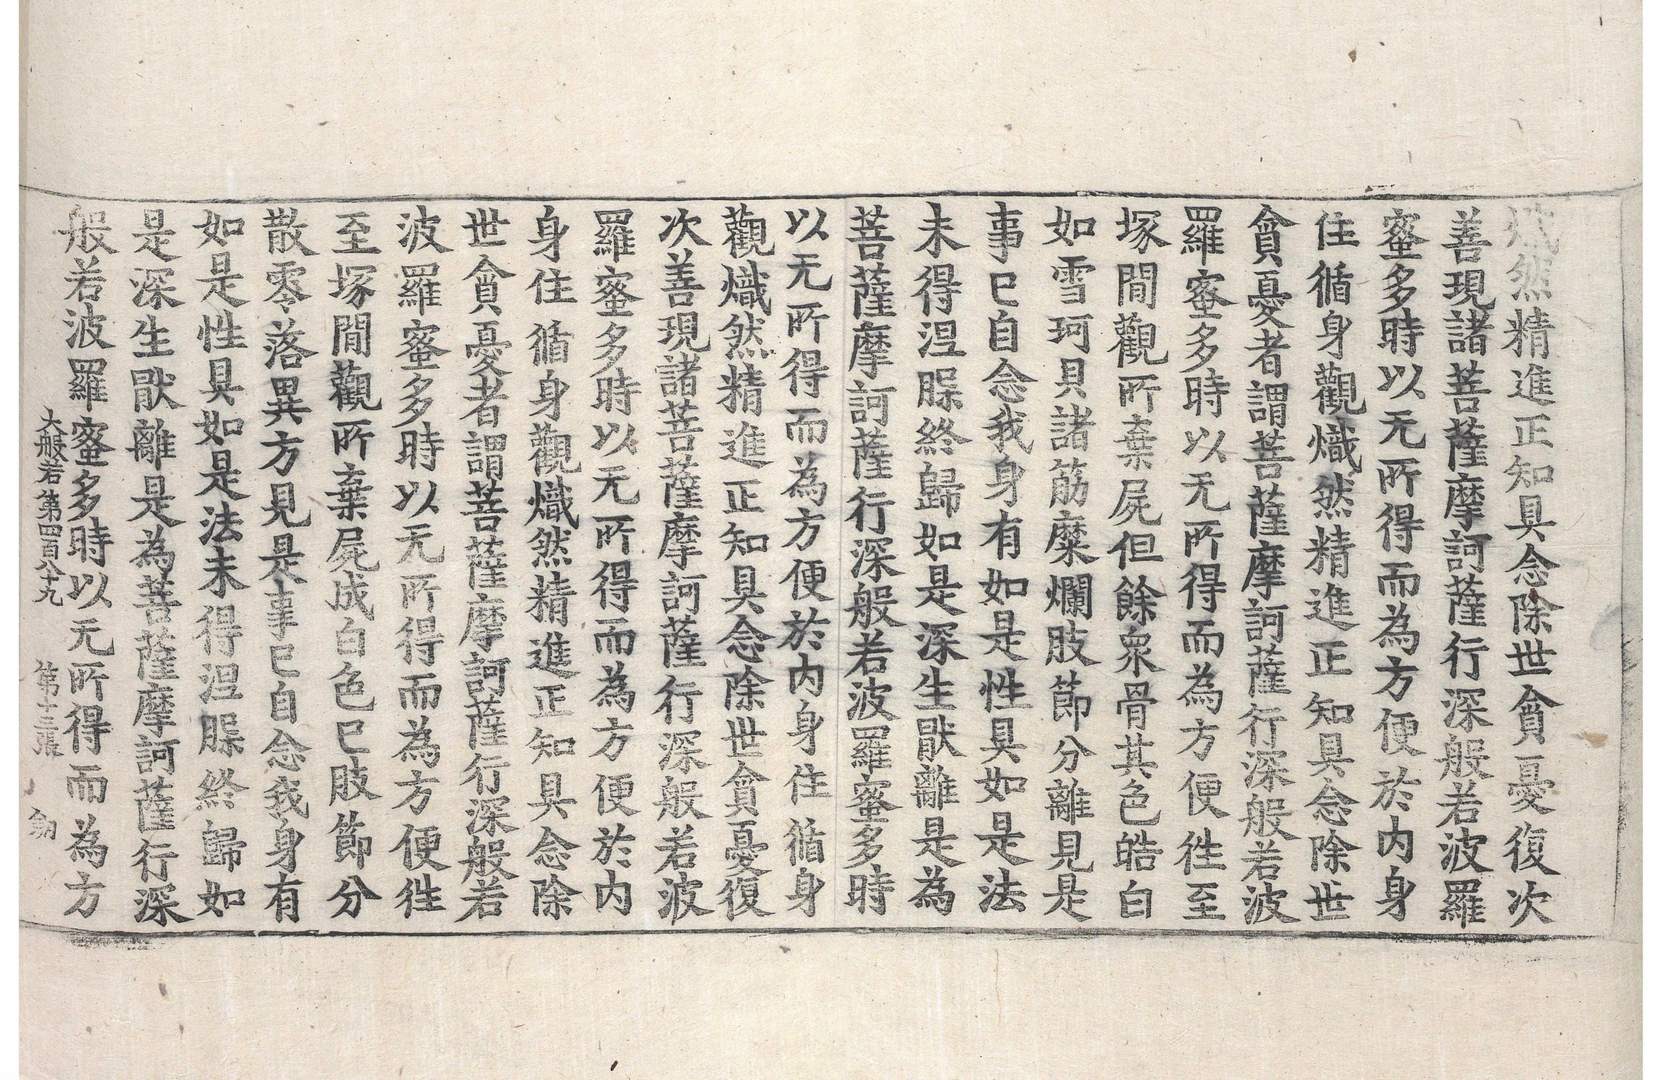 熾然精進正知具念除世貪憂復次
善現諸菩薩摩訶薩行深般若波羅
蜜多時以无所得而為方便於內身
住循身觀熾然精進正知具念除世
貪憂者謂菩薩摩訶薩行深般若波
羅蜜多時以无所得而為方便徃至
塚間觀所棄屍但餘衆骨其色皓白
如雪珂貝諸筋糜爛肢節分離見是
事已自念我身有如是性具如是法
未得涅槃終歸如是深生猒離是為
菩薩摩訶薩行深般若波羅蜜多時
以无所得而為方便於內身住循身
觀熾然精進正知具念除世貪憂復
次善現諸菩薩摩訶薩行深般若波
羅蜜多時以无所得而為方便於內
身住循身觀熾然精進正知具念除
世貪憂者謂菩薩摩訶薩行深般若
波羅蜜多時以无所得而為方便徃
至塚間觀所棄屍成白色已肢節分
散零落異方見是事已自念我身有
如是性具如是法未得涅槃終歸如
是深生猒離是為菩薩摩訶薩行深
般若波羅蜜多時以无所得而為方
大般若第四百八十九 第十三張 劒